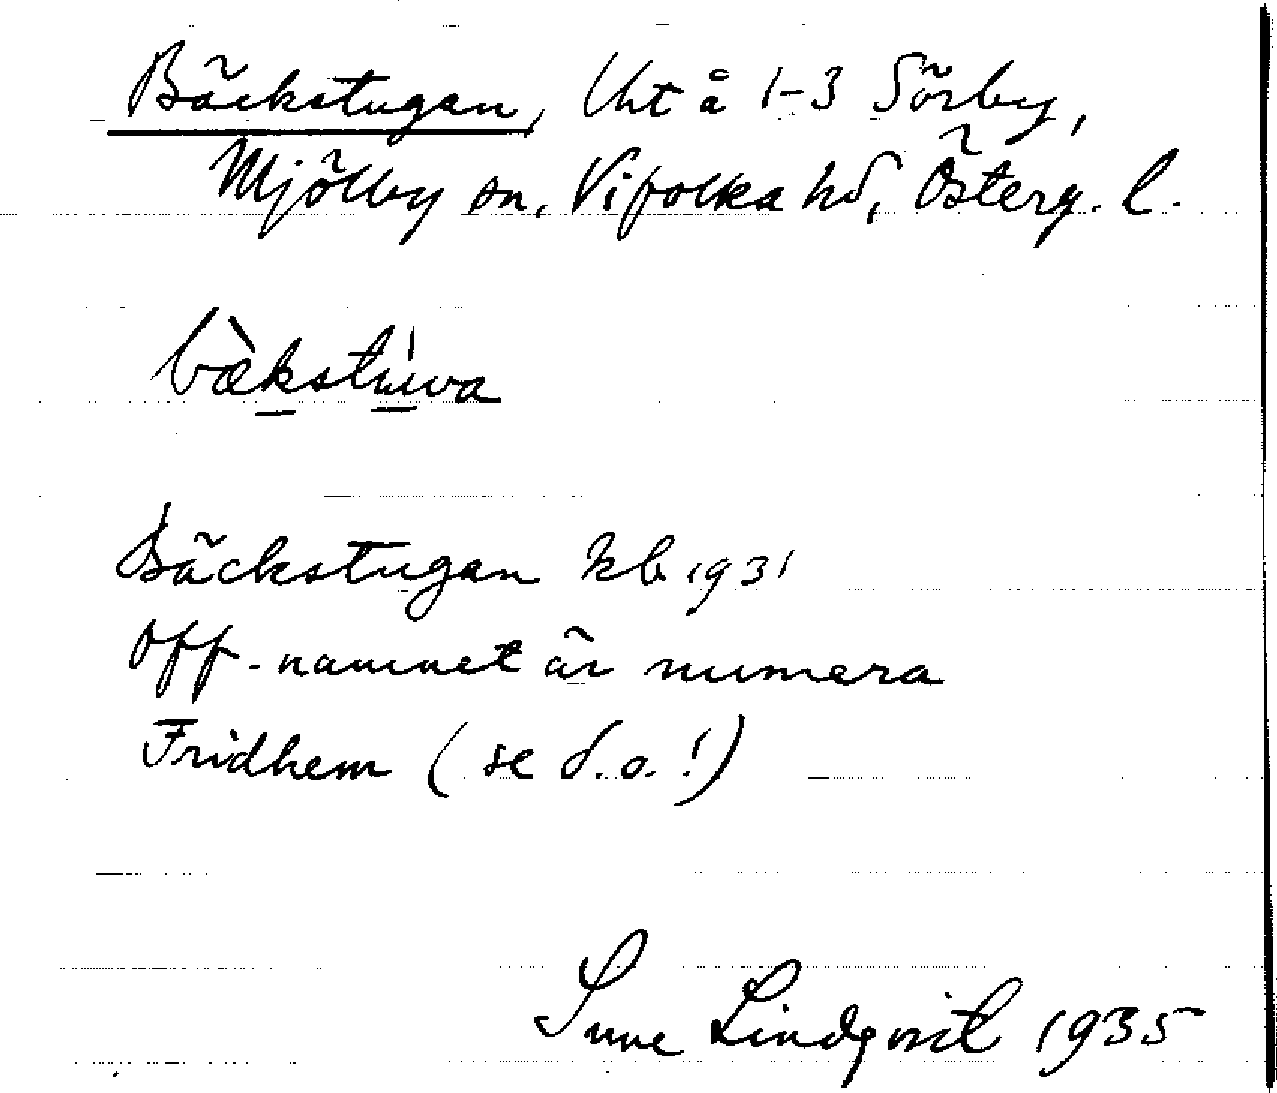 Bäckstugan, Uht å 1-3 Sörby,
Mjölby sn, Vifolka hd, Österg. l.
bæ̀kstúwa
Bäckstugan kb 1931
Off-namnet är numera
Fridhem (se d.o.!)
Sune Lindqvist 1935